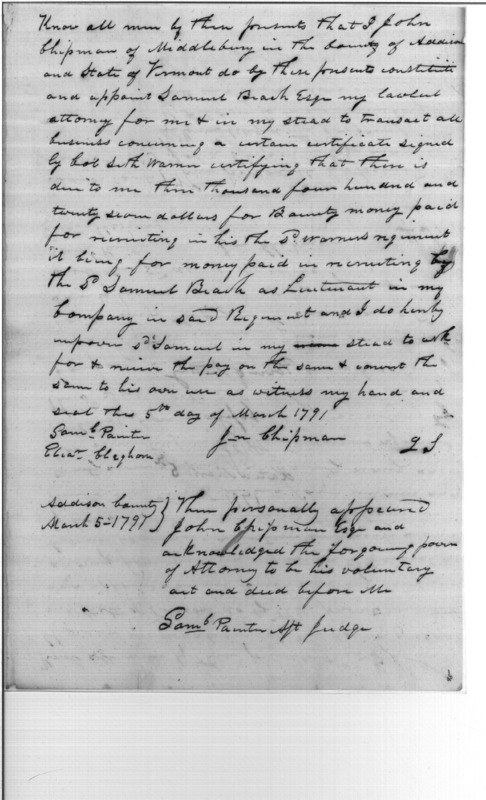 Know all men by these presents that I John
Chipman of Middlebury in the County of Addison
and State of Vermont do by these presents constitute
and appoint Samuel Beach Esqr my lawful
attorney for me & in my stead to transact all
business concerning a certain certificate signed
by Col Seth Warner certifying that there is
due to me three thousand four hundred and
twenty seven dollars for Bounty money paid
for recruiting in his the sd Warners regiment
it being for money paid in recruiting by
the sd Samuel Beach as Lieutenant in my
Company in said Regiment and I do hereby
empower sd Samuel in my stead to ask
for & receive the pay on the same & convert the
same to his own use as witness my hand and
seal this 5th day of March 1791
Saml Painter Jn Chipman L S
Cleghorn
Addison County } Then personally appeared
March 5-1791 } John Chipman Esqr and
acknowledged the forgoing power
of Attorney to be his voluntary
act and deed before Me
Saml Painter Asst Judge